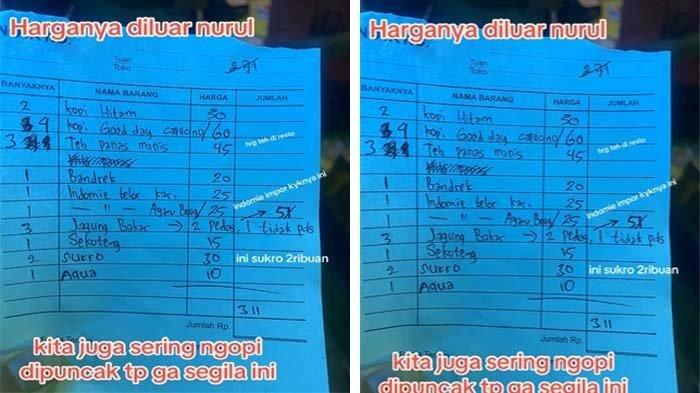 Harganya diluar nurul
Tuan
Toko
271
BANYAKNYA NAMA BARANG HARGA JUMLAH
2 Kopi Hitam 30
4 kopi Good day capucino/ 60
3 Teh panas manis 45 hrg teh di resto
1 Bandrek 20
1 Indomie telor kari 25 indomie impor kyknya ini
1 — " — Ayam Bawg/ 25 → 5X
3 Jagung Bakar → 2 Pedas, 1 tidak pds
1 Sekoteng 15
2 Sukro 30 ini sukro 2ribuan
1 Aqua 10
311
Jumlah Rp.
kita juga sering ngopi
dipuncak tp ga segila ini
Harganya diluar nurul
Tuan
Toko
271
BANYAKNYA NAMA BARANG HARGA JUMLAH
2 Kopi Hitam 30
4 kopi Good day capucino/ 60
3 Teh panas manis 45 hrg teh di resto
1 Bandrek 20
1 Indomie telor kari 25 indomie impor kyknya ini
1 — " — Ayam Bawg/ 25 → 5X
3 Jagung Bakar → 2 Pedas, 1 tidak pds
1 Sekoteng 15
2 Sukro 30 ini sukro 2ribuan
1 Aqua 10
311
Jumlah Rp.
kita juga sering ngopi
dipuncak tp ga segila ini